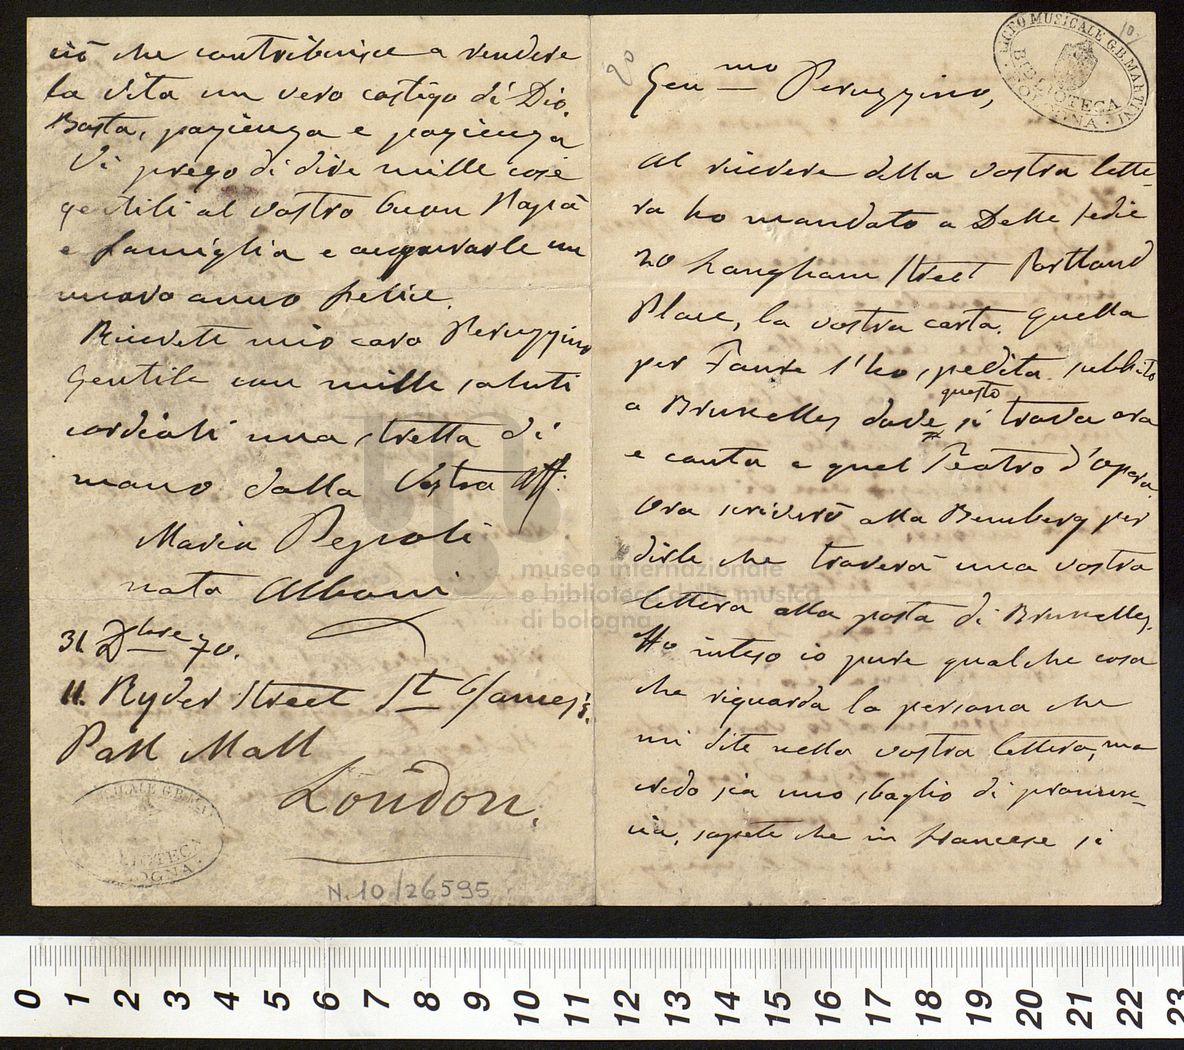 20
107
LICEO MUSICALE G.B. MARTINI
BIBLIOTECA
BOLOGNA
Gen.mo Peruzzino,
Al ricevere della vostra lette-
ra ho mandato a Delle Sedie
20 Langham Street Portland
Place, la vostra carta. Quella
per Faure l'ho spedita subbito
a Bruxelles dove questo si trova ora
e canta a quel Teatro d'opera.
Ora scriverò alla Bemberg per
dirle che troverà una vostra
lettera alla posta di Bruxelles.
Ho inteso io pure qualche cosa
che riguarda la persona che
mi dite nella vostra lettera, ma
credo sia uno sbaglio di pronun-
cia, sapete che in francese si
ciò che contribuisce a rendere
la vita un vero castigo di Dio.
Basta, pazienza e pazienza
Vi prego di dire mille cose
gentili al vostro buon Papà
e famiglia e augurarle un
nuovo anno felice.
Ricevete mio caro Peruzzino
gentile con mille saluti
cordiali una stretta di
mano dalla Vostra Aff.
Maria Pepoli
nata Alboni
31 Xbre 70.
11. Ryder Street St James's.
Pall Mall
London.
N. 10/26595
museo internazionale
e biblioteca della musica
di bologna
0 1 2 3 4 5 6 7 8 9 10 11 12 13 14 15 16 17 18 19 20 21 22 23